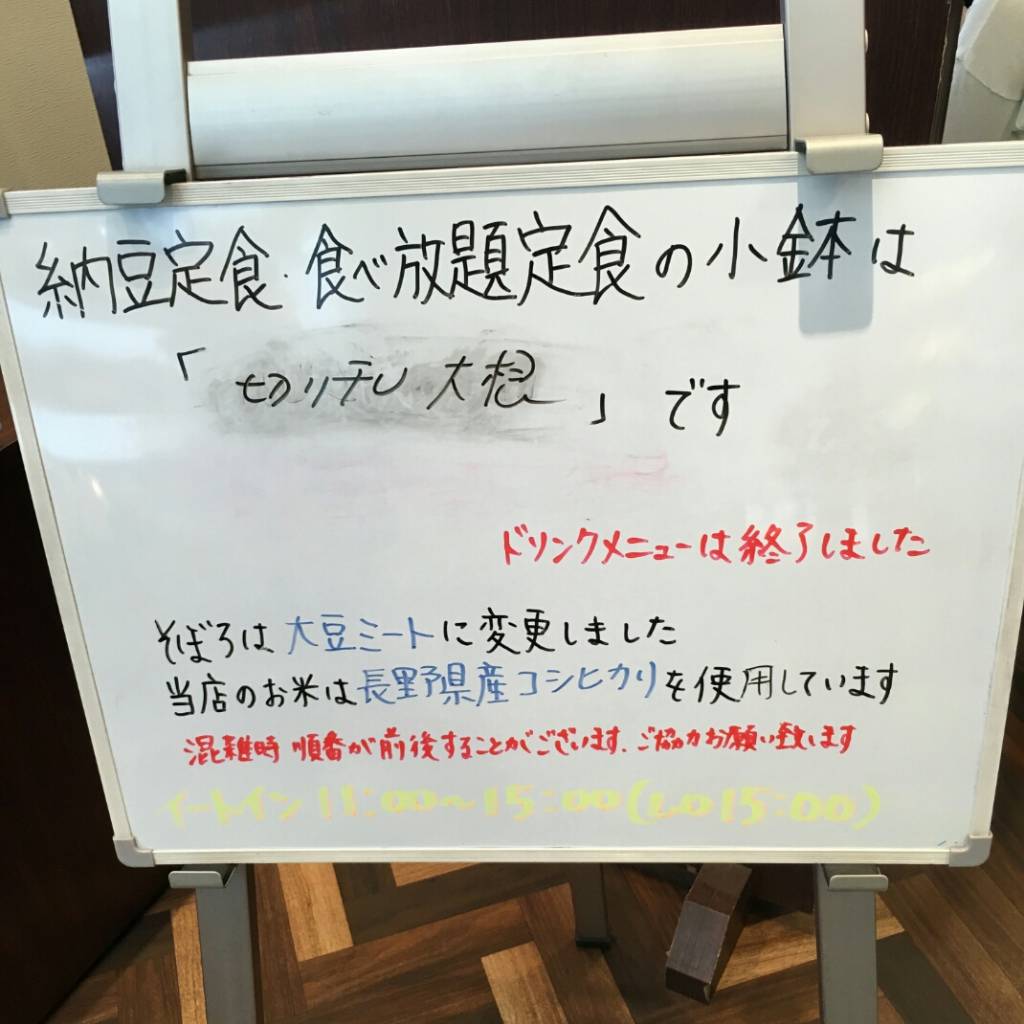 納豆定食・食べ放題定食の小鉢は
「切り干し大根」です
ドリンクメニューは終了しました
そぼろは大豆ミートに変更しました
当店のお米は長野県産コシヒカリを使用しています
混雑時 順番が前後することがございます、ご協力お願い致します
イートイン 11:00〜15:00(LO15:00)